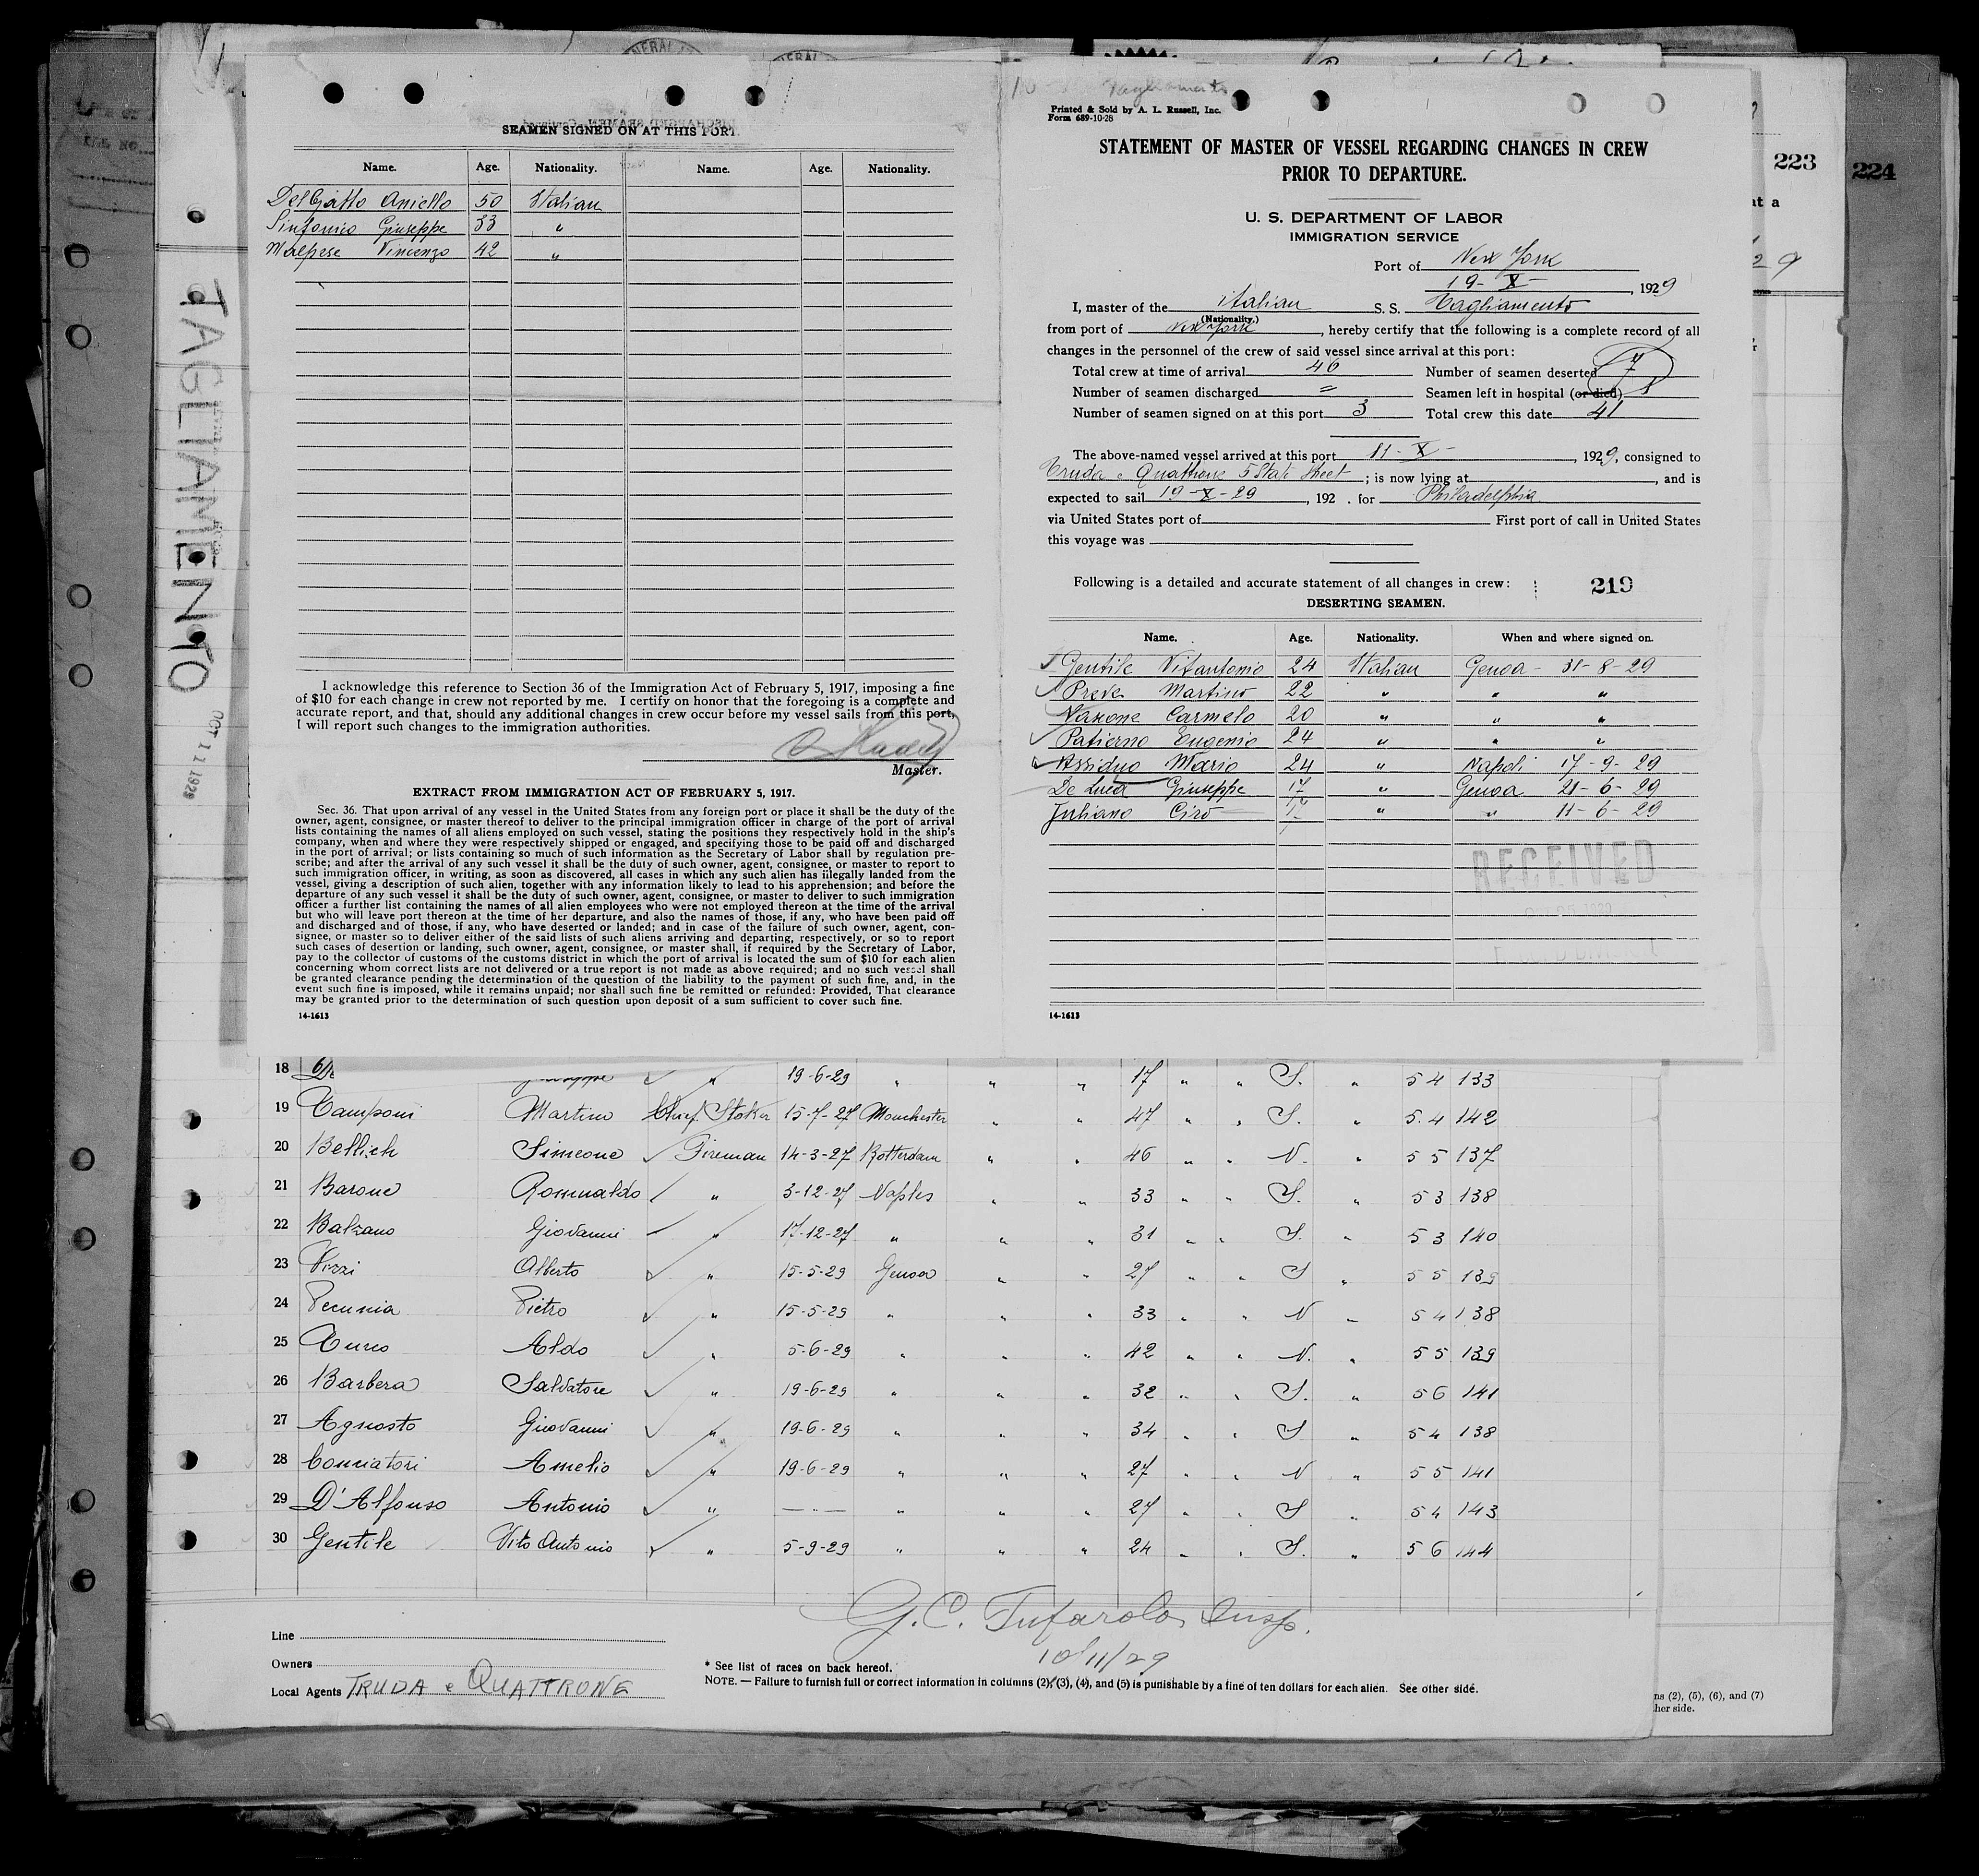 SEAMEN SIGNED ON AT THIS PORT.
Name. Age. Nationality. Name. Age. Nationality.
Del Gatto Aniello 50 Italian
Sinfonio Giuseppe 33 "
Malpese Vincenzo 42 "
I acknowledge this reference to Section 36 of the Immigration Act of February 5, 1917, imposing a fine
of $10 for each change in crew not reported by me. I certify on honor that the foregoing is a complete and
accurate report, and that, should any additional changes in crew occur before my vessel sails from this port,
I will report such changes to the immigration authorities.
Master.
EXTRACT FROM IMMIGRATION ACT OF FEBRUARY 5, 1917.
Sec. 36. That upon arrival of any vessel in the United States from any foreign port or place it shall be the duty of the
owner, agent, consignee, or master thereof to deliver to the principal immigration officer in charge of the port of arrival
lists containing the names of all aliens employed on such vessel, stating the positions they respectively hold in the ship's
company, when and where they were respectively shipped or engaged, and specifying those to be paid off and discharged
in the port of arrival; or lists containing so much of such information as the Secretary of Labor shall by regulation pre-
scribe; and after the arrival of any such vessel it shall be the duty of such owner, agent, consignee, or master to report to
such immigration officer, in writing, as soon as discovered, all cases in which any such alien has illegally landed from the
vessel, giving a description of such alien, together with any information likely to lead to his apprehension; and before the
departure of any such vessel it shall be the duty of such owner, agent, consignee, or master to deliver to such immigration
officer a further list containing the names of all alien employees who were not employed thereon at the time of the arrival
but who will leave port thereon at the time of her departure, and also the names of those, if any, who have been paid off
and discharged and of those, if any, who have deserted or landed; and in case of the failure of such owner, agent, con-
signee, or master so to deliver either of the said lists of such aliens arriving and departing, respectively, or so to report
such cases of desertion or landing, such owner, agent, consignee, or master shall, if required by the Secretary of Labor,
pay to the collector of customs of the customs district in which the port of arrival is located the sum of $10 for each alien
concerning whom correct lists are not delivered or a true report is not made as above required; and no such vessel shall
be granted clearance pending the determination of the question of the liability to the payment of such fine, and, in the
event such fine is imposed, while it remains unpaid; nor shall such fine be remitted or refunded: Provided, That clearance
may be granted prior to the determination of such question upon deposit of a sum sufficient to cover such fine.
14-1613
TAGLIAMENTO
OCT 11 1929
Tagliamento
Printed & Sold by A. L. Russell, Inc.
Form 689-10-28
STATEMENT OF MASTER OF VESSEL REGARDING CHANGES IN CREW
PRIOR TO DEPARTURE.
U. S. DEPARTMENT OF LABOR
IMMIGRATION SERVICE
Port of New York
19-X- , 1929
I, master of the italian S. S. Tagliamento
(Nationality.)
from port of New York , hereby certify that the following is a complete record of all
changes in the personnel of the crew of said vessel since arrival at this port:
Total crew at time of arrival 46 Number of seamen deserted 7
Number of seamen discharged = Seamen left in hospital (or died) 1
Number of seamen signed on at this port 3 Total crew this date 41
The above-named vessel arrived at this port 11-X- , 1929, consigned to
Truda e Quattrone 5 State Street ; is now lying at , and is
expected to sail 19-X-29 , 192 . for Philadelphia
via United States port of First port of call in United States
this voyage was
Following is a detailed and accurate statement of all changes in crew: 219
DESERTING SEAMEN.
Name. Age. Nationality. When and where signed on.
Gentile Vitantonio 24 Italian Genoa - 31-8-29
Preve Martino 22 " " "
Naxone Carmelo 20 " " "
Patierno Eugenio 24 " " "
Assiduo Mario 24 " Napoli 17-9-29
De Luca Giuseppe 17 " Genoa 21-6-29
Juliano Ciro " " 11-6-29
RECEIVED
14-1613
223
224
at a
29
18 19-6-29 " " " 17 " " S. " 5 4 133
19 Camponi Martino Chief Stoker 15-7-27 Manchester " " 47 " " S. " 5.4 142
20 Bellich Simeone Fireman 14-3-27 Rotterdam " " 46 " " N. " 5 5 137
21 Barone Romualdo " 3-12-27 Naples " " 33 " " S. " 5 3 138
22 Balzano Giovanni " 17-12-27 " " " 31 " " S. " 5 3 140
23 Vizzi Alberto " 15-5-29 Genoa " " 27 " " S " 5 5 139
24 Pecunia Pietro " 15-5-29 " " " 33 " " N " 5 4 138
25 Curco Aldo " 5-6-29 " " " 42 " " N. " 5 5 139
26 Barbera Salvatore " 19-6-29 " " " 32 " " S. " 5 6 141
27 Agnosto Giovanni " 19-6-29 " " " 34 " " S " 5 4 138
28 Conciatori Amelio " 19-6-29 " " " 27 " " N " 5 5 141
29 D'Alfonso Antonio " — " — " " " 27 " " S " 5 4 143
30 Gentile Vito Antonio " 5-9-29 " " " 24 " " S. " 5 6 144
G. C. Tufarolo, Insp.
10/11/29
Line
Owners
Local Agents TRUDA e QUATTRONE
* See list of races on back hereof.
NOTE. — Failure to furnish full or correct information in columns (2), (3), (4), and (5) is punishable by a fine of ten dollars for each alien. See other side.
ns (2), (5), (6), and (7)
her side.